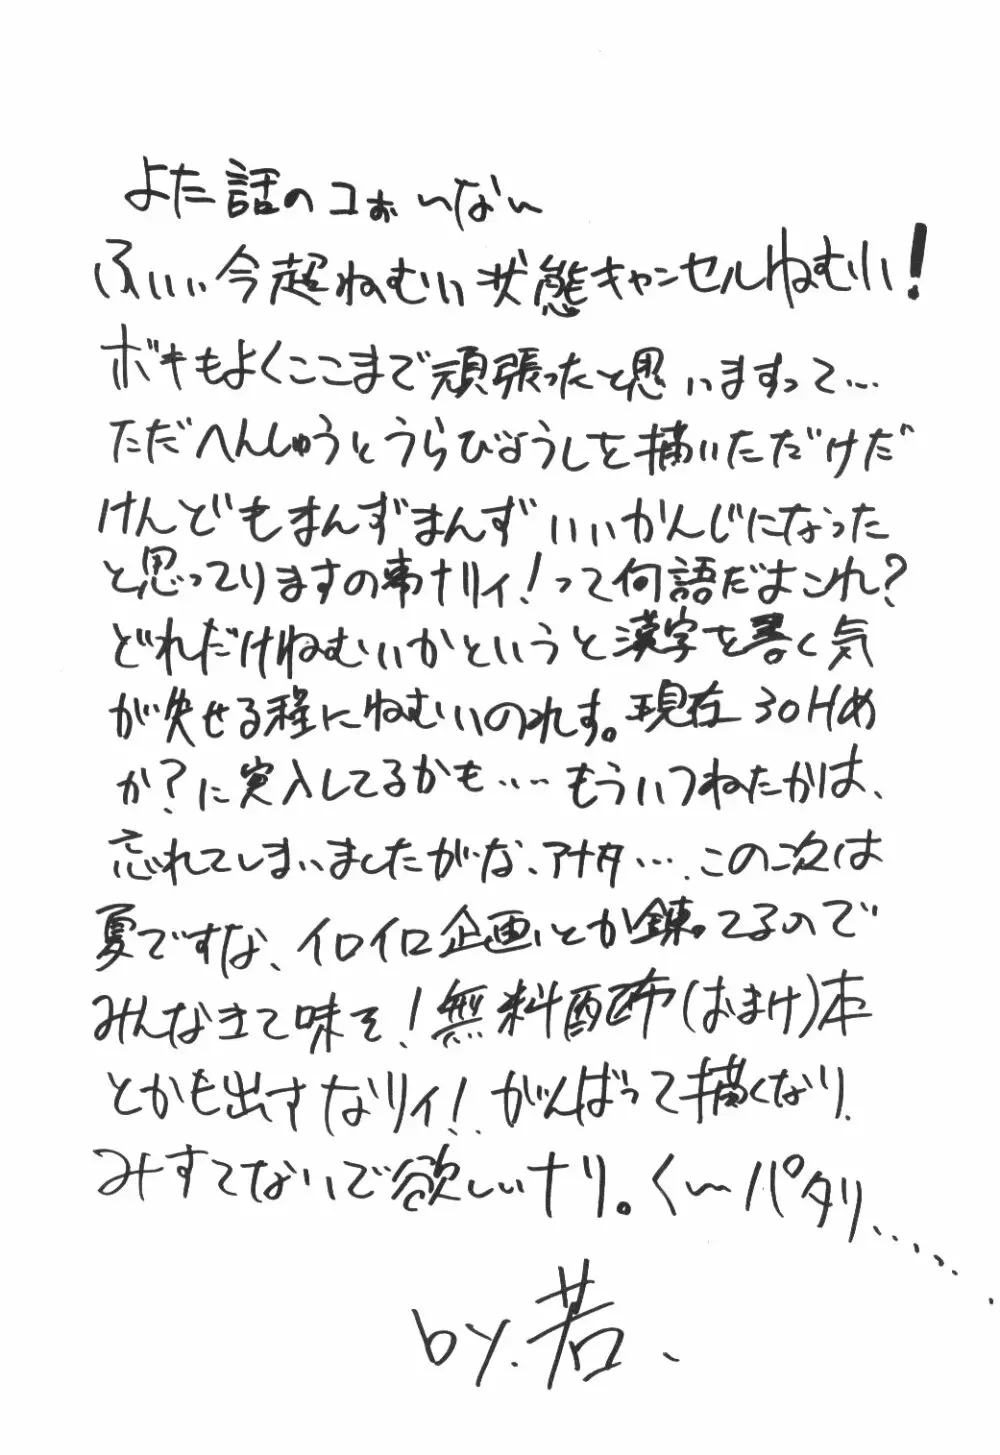 よた話のコぉいない
ふぃぃ今超ねむい状態キャンセルねむい!
ボキもよくここまで頑張ったと思いますって…
ただへんしゅうとうらびょうしを描いただけだ
けんどもまんずまんずいいかんじになった
と思ってりますの事ナリィ!って何語だよこれ?
どれだけねむいかというと漢字を書く気
が失せる程にねむいのれす。現在30Hめ
か?に突入してるかも……もういつねたかは、
忘れてしまいましたがな、アナタ…、この次は
夏ですな、イロイロ企画とか錬ってるので
みんなきて味そ!無料配布(おまけ)本
とかも出すなりィ!がんばって描くなり、
みすてないで欲しいナリ。く〜パタリ......
by.若、